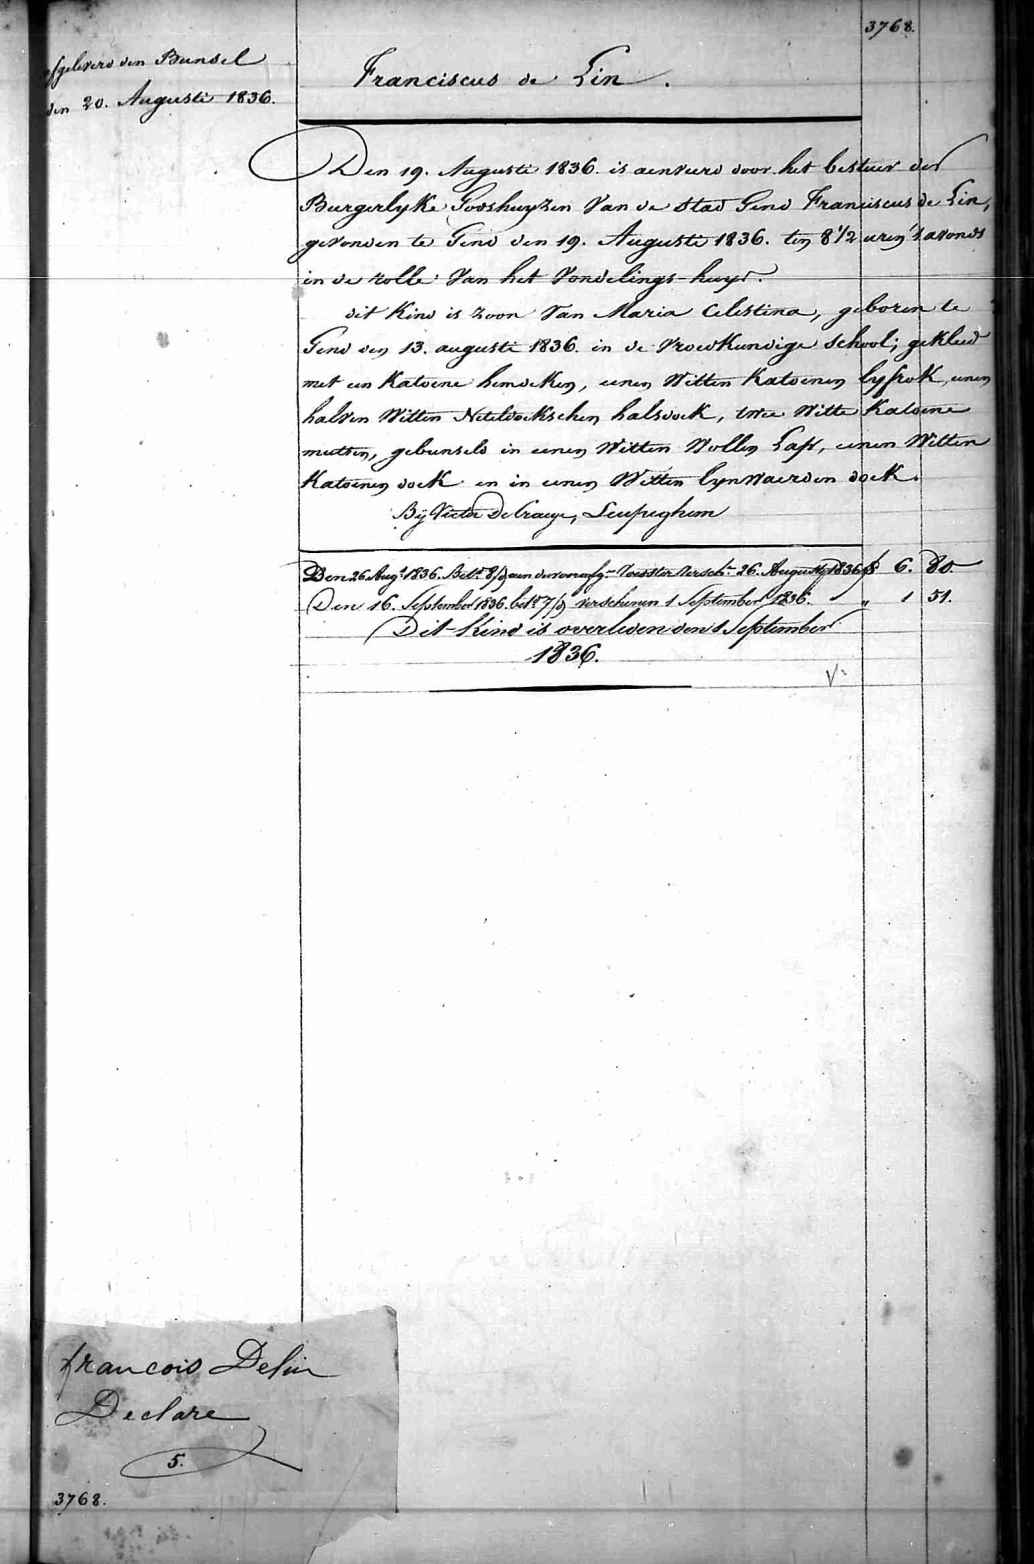 3768.
afgeleverd den Bunsel
den 20. Augusti 1836.
Franciscus de Lin.
Den 19. Augusti 1836. is aenveerd door het bestuer der
Burgerlyke Godshuyzen Van de Stad Gend Franciscus de Lin,
gevonden te Gend den 19. Augusti 1836. ten 8 1/2 uren 's avonds
in de rolle Van het Vondelings-huys.
dit Kind is zoon Van Maria Celestina, geboren te
Gend den 13. augusti 1836. in de Vroedkundige School; gekleed
met een Katoene hemdeken, eenen Witten Katoenen lyfrok, eenen
halven Witten Neteldoekschen halsdoek, twee Witte Katoene
mutsen, gebunseld in eenen Witten Wollen Lap, eenen Witten
Katoenen doek en in eenen Witten lynwaerden doek.
By Victor De Craeye, Leupeghem
Den 26 Augt. 1836. Bet. 8/d aen de voorafg. Voedster Versch. 26. Augusty 1836 f 6. 80.
Den 16. September 1836. bet. 7/d verschenen 1 September 1836. " 1 51.
Dit Kind is overleden den 1 September
1836.
V.
francois Delin
Declare
5.
3768.